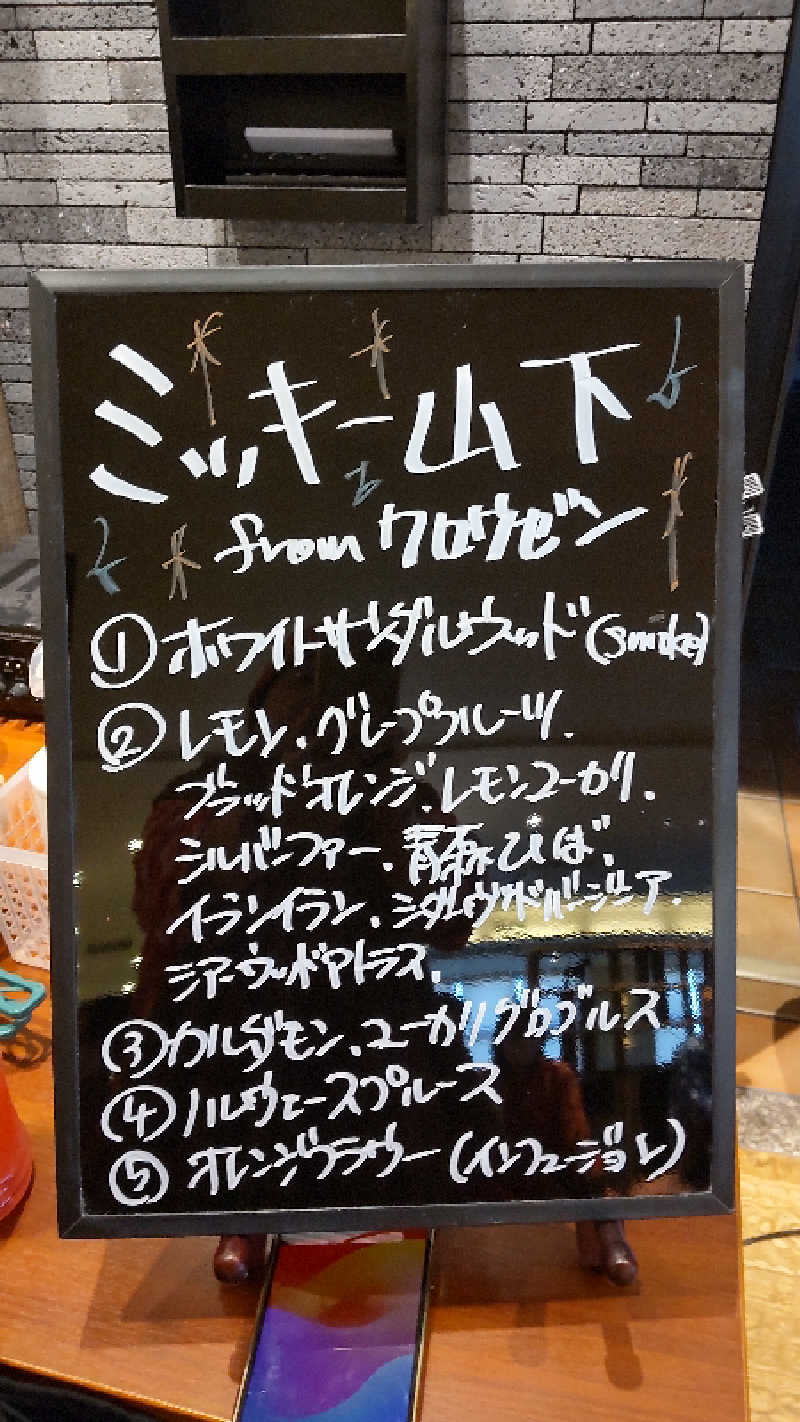 ミッキー山下
from クロウゼン
① ホワイトサンダルウッド(smoke)
② レモン、グレープフルーツ、
ブラッドオレンジ、レモンユーカリ、
シルバーファー、青森ひば、
イランイラン、シダーウッドバージニア、
シダーウッドアトラス、
③ カルダモン、ユーカリグロブルス
④ ノルウェースプルース
⑤ オレンジフラワー(インフュージョン)